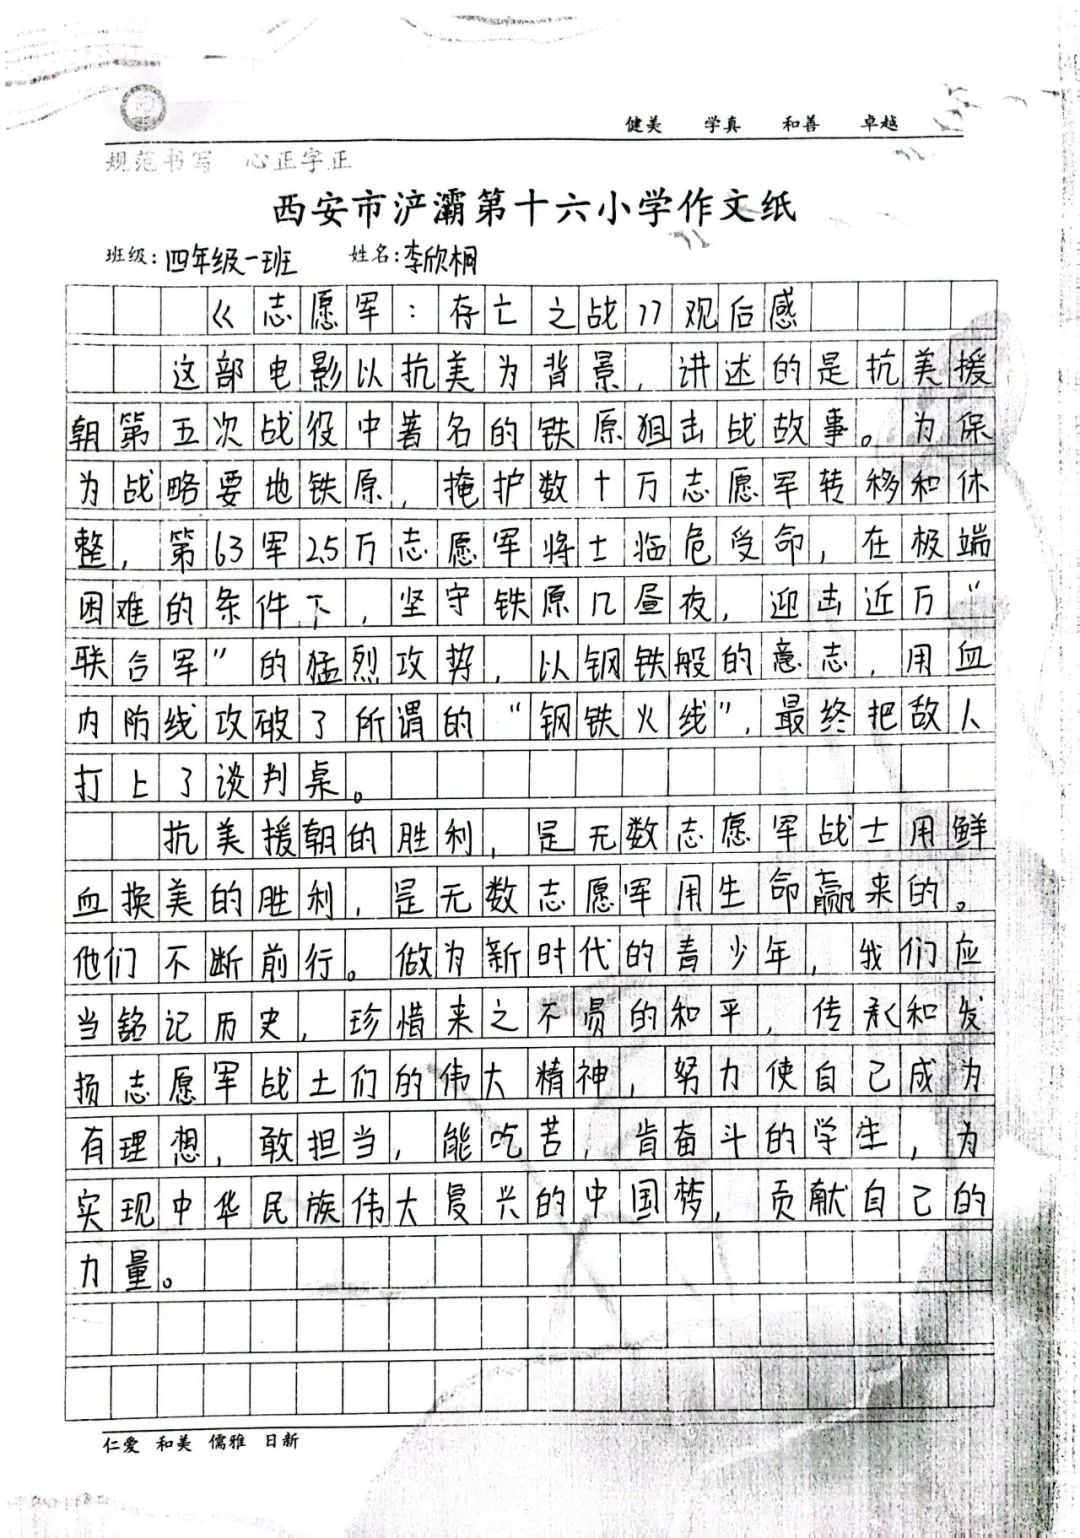 健美 学真 和善 卓越
规范书写 心正字正
西安市浐灞第十六小学作文纸
班级:四年级一班 姓名:李欣桐
《志愿军:存亡之战》观后感
这部电影以抗美为背景,讲述的是抗美援
朝第五次战役中著名的铁原狙击战故事。为保
为战略要地铁原,掩护数十万志愿军转移和休
整,第63军25万志愿军将士临危受命,在极端
困难的条件下,坚守铁原几昼夜,迎击近万“
联合军”的猛烈攻势,以钢铁般的意志,用血
内防线攻破了所谓的“钢铁火线”,最终把敌人
打上了谈判桌。
抗美援朝的胜利,是无数志愿军战士用鲜
血换美的胜利,是无数志愿军用生命赢来的。
他们不断前行。做为新时代的青少年,我们应
当铭记历史,珍惜来之不易的和平,传承和发
扬志愿军战士们的伟大精神,努力使自己成为
有理想,敢担当,能吃苦,肯奋斗的学生,为
实现中华民族伟大复兴的中国梦,贡献自己的
力量。
仁爱 和美 儒雅 日新